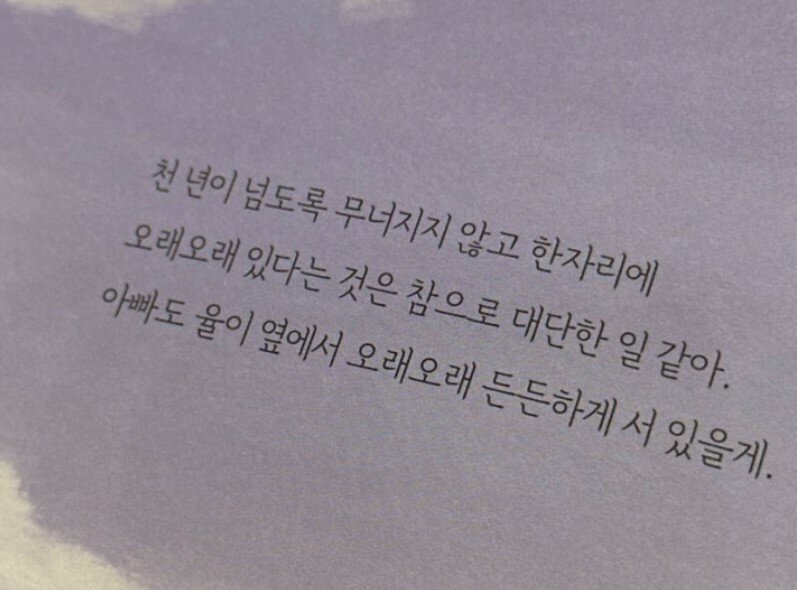 천 년이 넘도록 무너지지 않고 한자리에
오래오래 있다는 것은 참으로 대단한 일 같아.
아빠도 율이 옆에서 오래오래 든든하게 서 있을게.